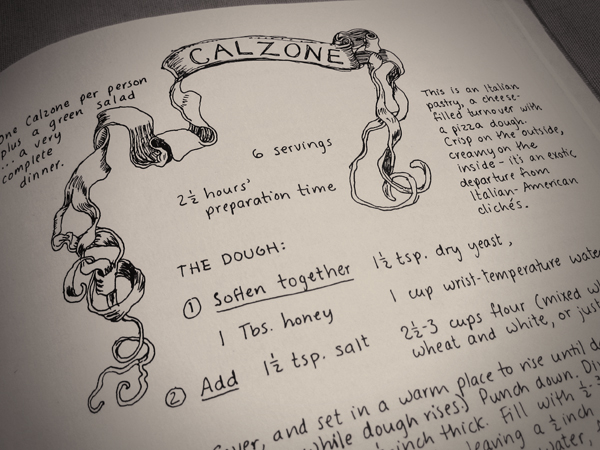 CALZONE
one Calzone per person
plus a green salad
... a very
complete
dinner.
This is an Italian
pastry, a cheese-
filled turnover with
a pizza dough.
Crisp on the outside,
creamy on the
inside - it's an exotic
departure from
Italian-American
clichés.
6 servings
2½ hours'
preparation time
THE DOUGH:
① Soften together
1½ tsp. dry yeast,
1 Tbs. honey
1 cup wrist-temperature water
② Add
1½ tsp. salt
2½-3 cups flour (mixed
wheat and white, or just
and set in a warm place to rise until
while dough rises.) Punch down.
inch thick. Fill with ½-
leaving a ½ inch
water,